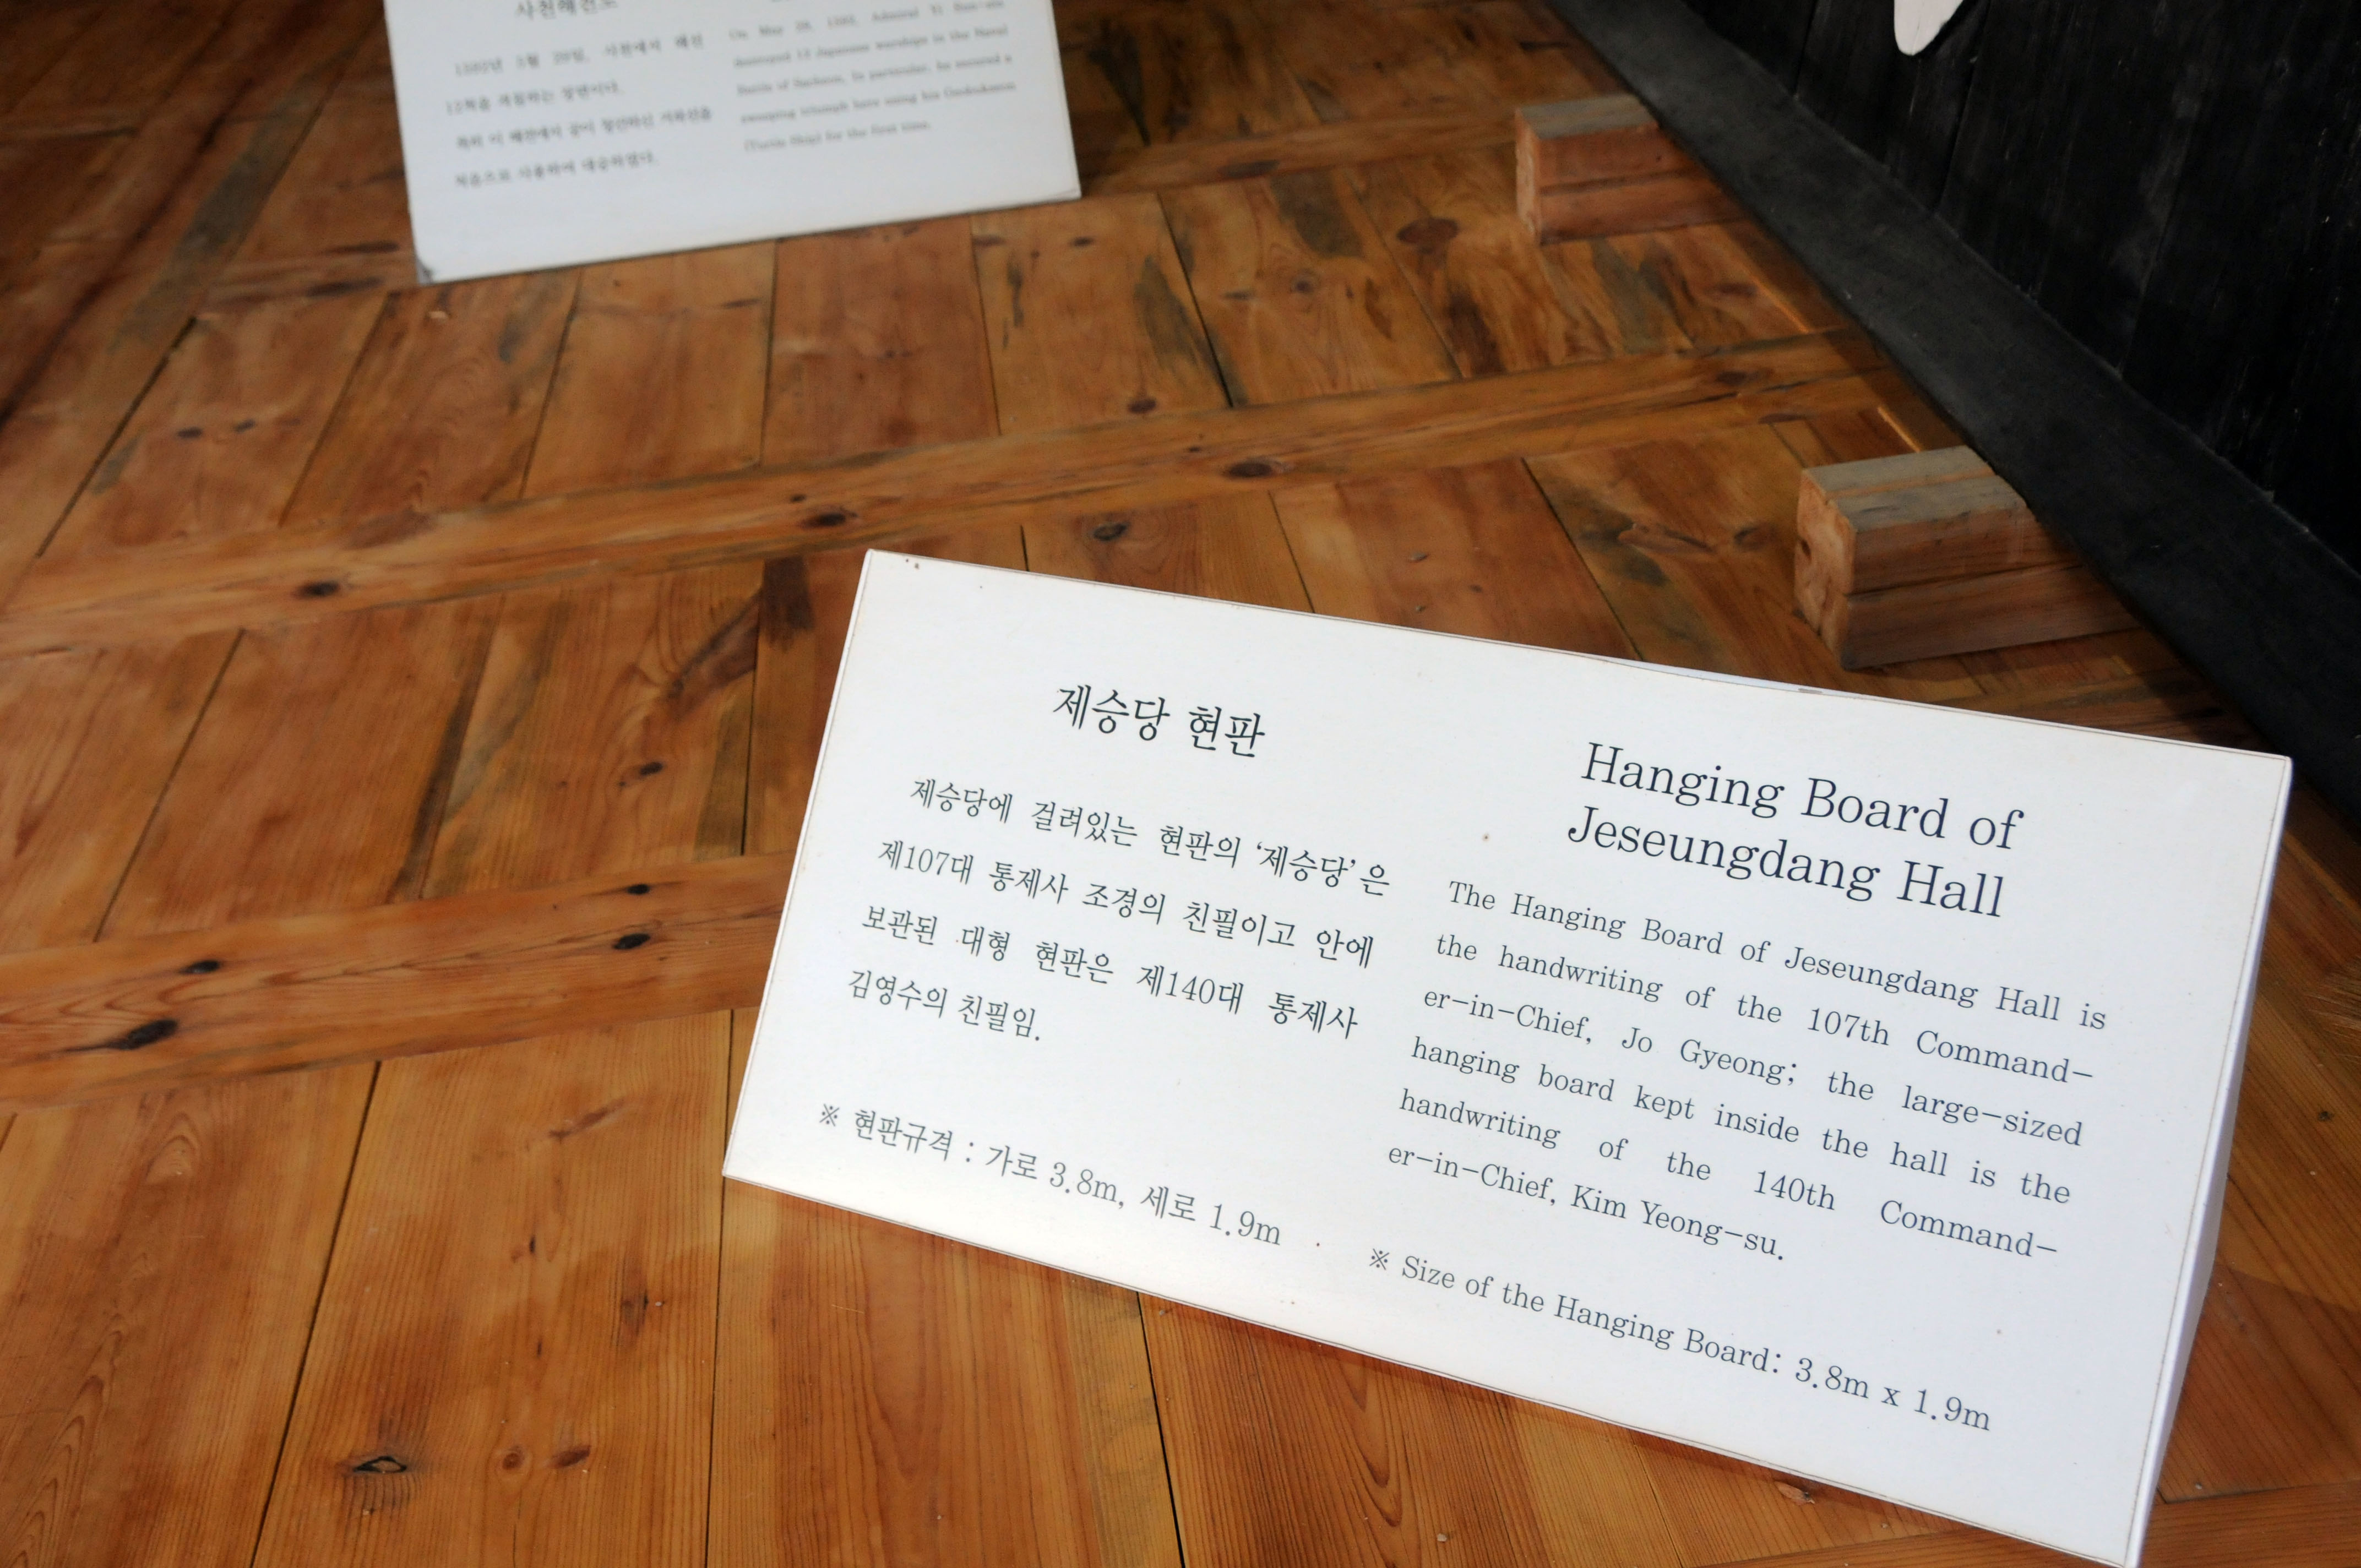 사천해전도
1592년 5월 29일, 사천에서 왜선
13척을 격침하는 장면이다.
특히 이 해전에서 공이 창안하신 거북선을
처음으로 사용하여 대승하였다.
On May 29, 1592, Admiral Yi Sun-sin
destroyed 13 Japanese warships in the Naval
Battle of Sacheon. In particular, he secured a
sweeping triumph here using his Geobukseon
(Turtle Ship) for the first time.
제승당 현판
제승당에 걸려있는 현판의 ‘제승당’은
제107대 통제사 조경의 친필이고 안에
보관된 대형 현판은 제140대 통제사
김영수의 친필임.
※ 현판규격 : 가로 3.8m, 세로 1.9m
Hanging Board of
Jeseungdang Hall
The Hanging Board of Jeseungdang Hall is
the handwriting of the 107th Command-
er-in-Chief, Jo Gyeong; the large-sized
hanging board kept inside the hall is the
handwriting of the 140th Command-
er-in-Chief, Kim Yeong-su.
※ Size of the Hanging Board: 3.8m x 1.9m